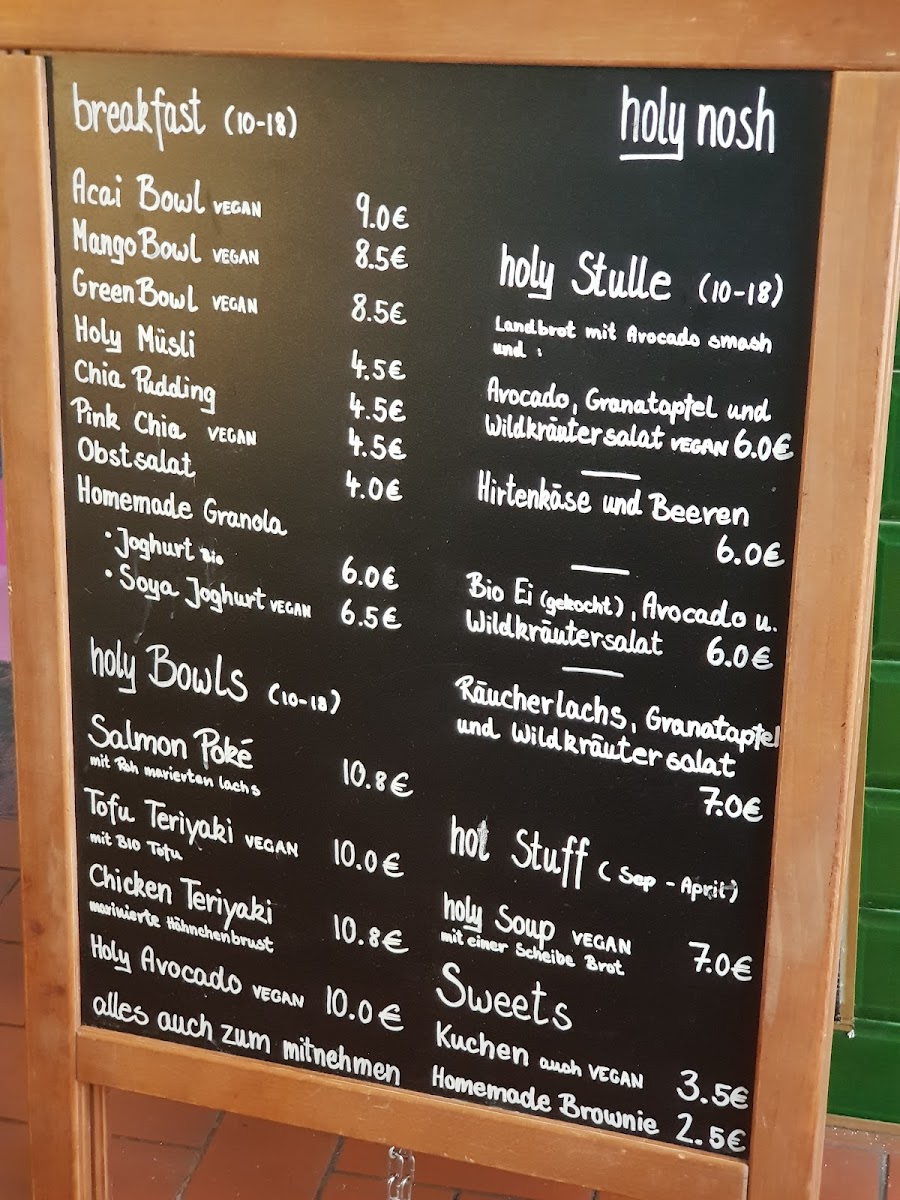 breakfast (10-18)
Acai Bowl VEGAN 9.0€
Mango Bowl VEGAN 8.5€
Green Bowl VEGAN 8.5€
Holy Müsli 4.5€
Chia Pudding 4.5€
Pink Chia VEGAN 4.5€
Obstsalat 4.0€
Homemade Granola
• Joghurt Bio 6.0€
• Soya Joghurt VEGAN 6.5€
holy Bowls (10-18)
Salmon Poké 10.8€
mit Roh marierten lachs
Tofu Teriyaki VEGAN 10.0€
mit BIO Tofu
Chicken Teriyaki 10.8€
marinierte Hähnchenbrust
Holy Avocado VEGAN 10.0€
alles auch zum mitnehmen
holy nosh
holy Stulle (10-18)
Landbrot mit Avocado smash
und :
Avocado, Granatapfel und
Wildkräutersalat VEGAN 6.0€
Hirtenkäse und Beeren
6.0€
Bio Ei (gekocht), Avocado u.
Wildkräutersalat 6.0€
Räucherlachs, Granatapfel
und Wildkräutersalat
7.0€
hot Stuff (Sep - April)
holy Soup VEGAN 7.0€
mit einer Scheibe Brot
Sweets
Kuchen auch VEGAN 3.5€
Homemade Brownie 2.5€